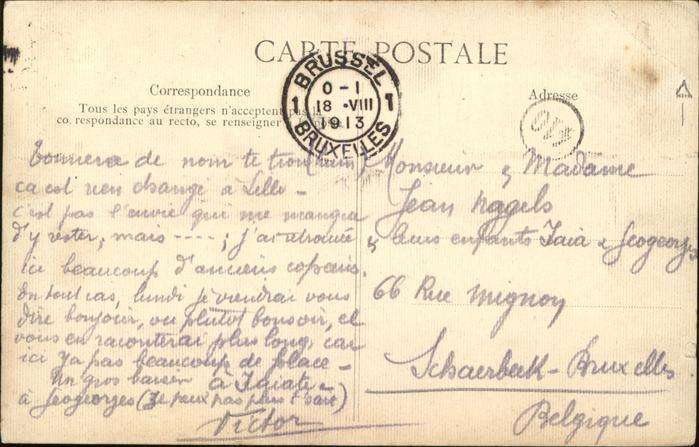 CARTE POSTALE
Correspondance
Tous les pays étrangers n'acceptent pas la
correspondance au recto, se renseigner
Adresse
BRUSSEL
1 0-1 1
18 ·VIII
1913
BRUXELLES
Tonnerre de nom te
ça est rien changé à Lille -
c'est pas l'envie qui me manque
d'y rester, mais ----; j'ai retrouvé
ici beaucoup d'anciens copains.
En tout cas, lundi je viendrai vous
dire bonjour, ou plutôt bonsoir, et
vous en raconterai plus long, car
ici ya pas beaucoup de place -
Un gros baiser à Taia &
à Geogeorges (Je peux pas plus)
Victor
Monsieur & Madame
Jean Nagels
& leurs enfants Taia & Geogeorges
66 Rue Mignon
Schaerbeek-Bruxelles
Belgique